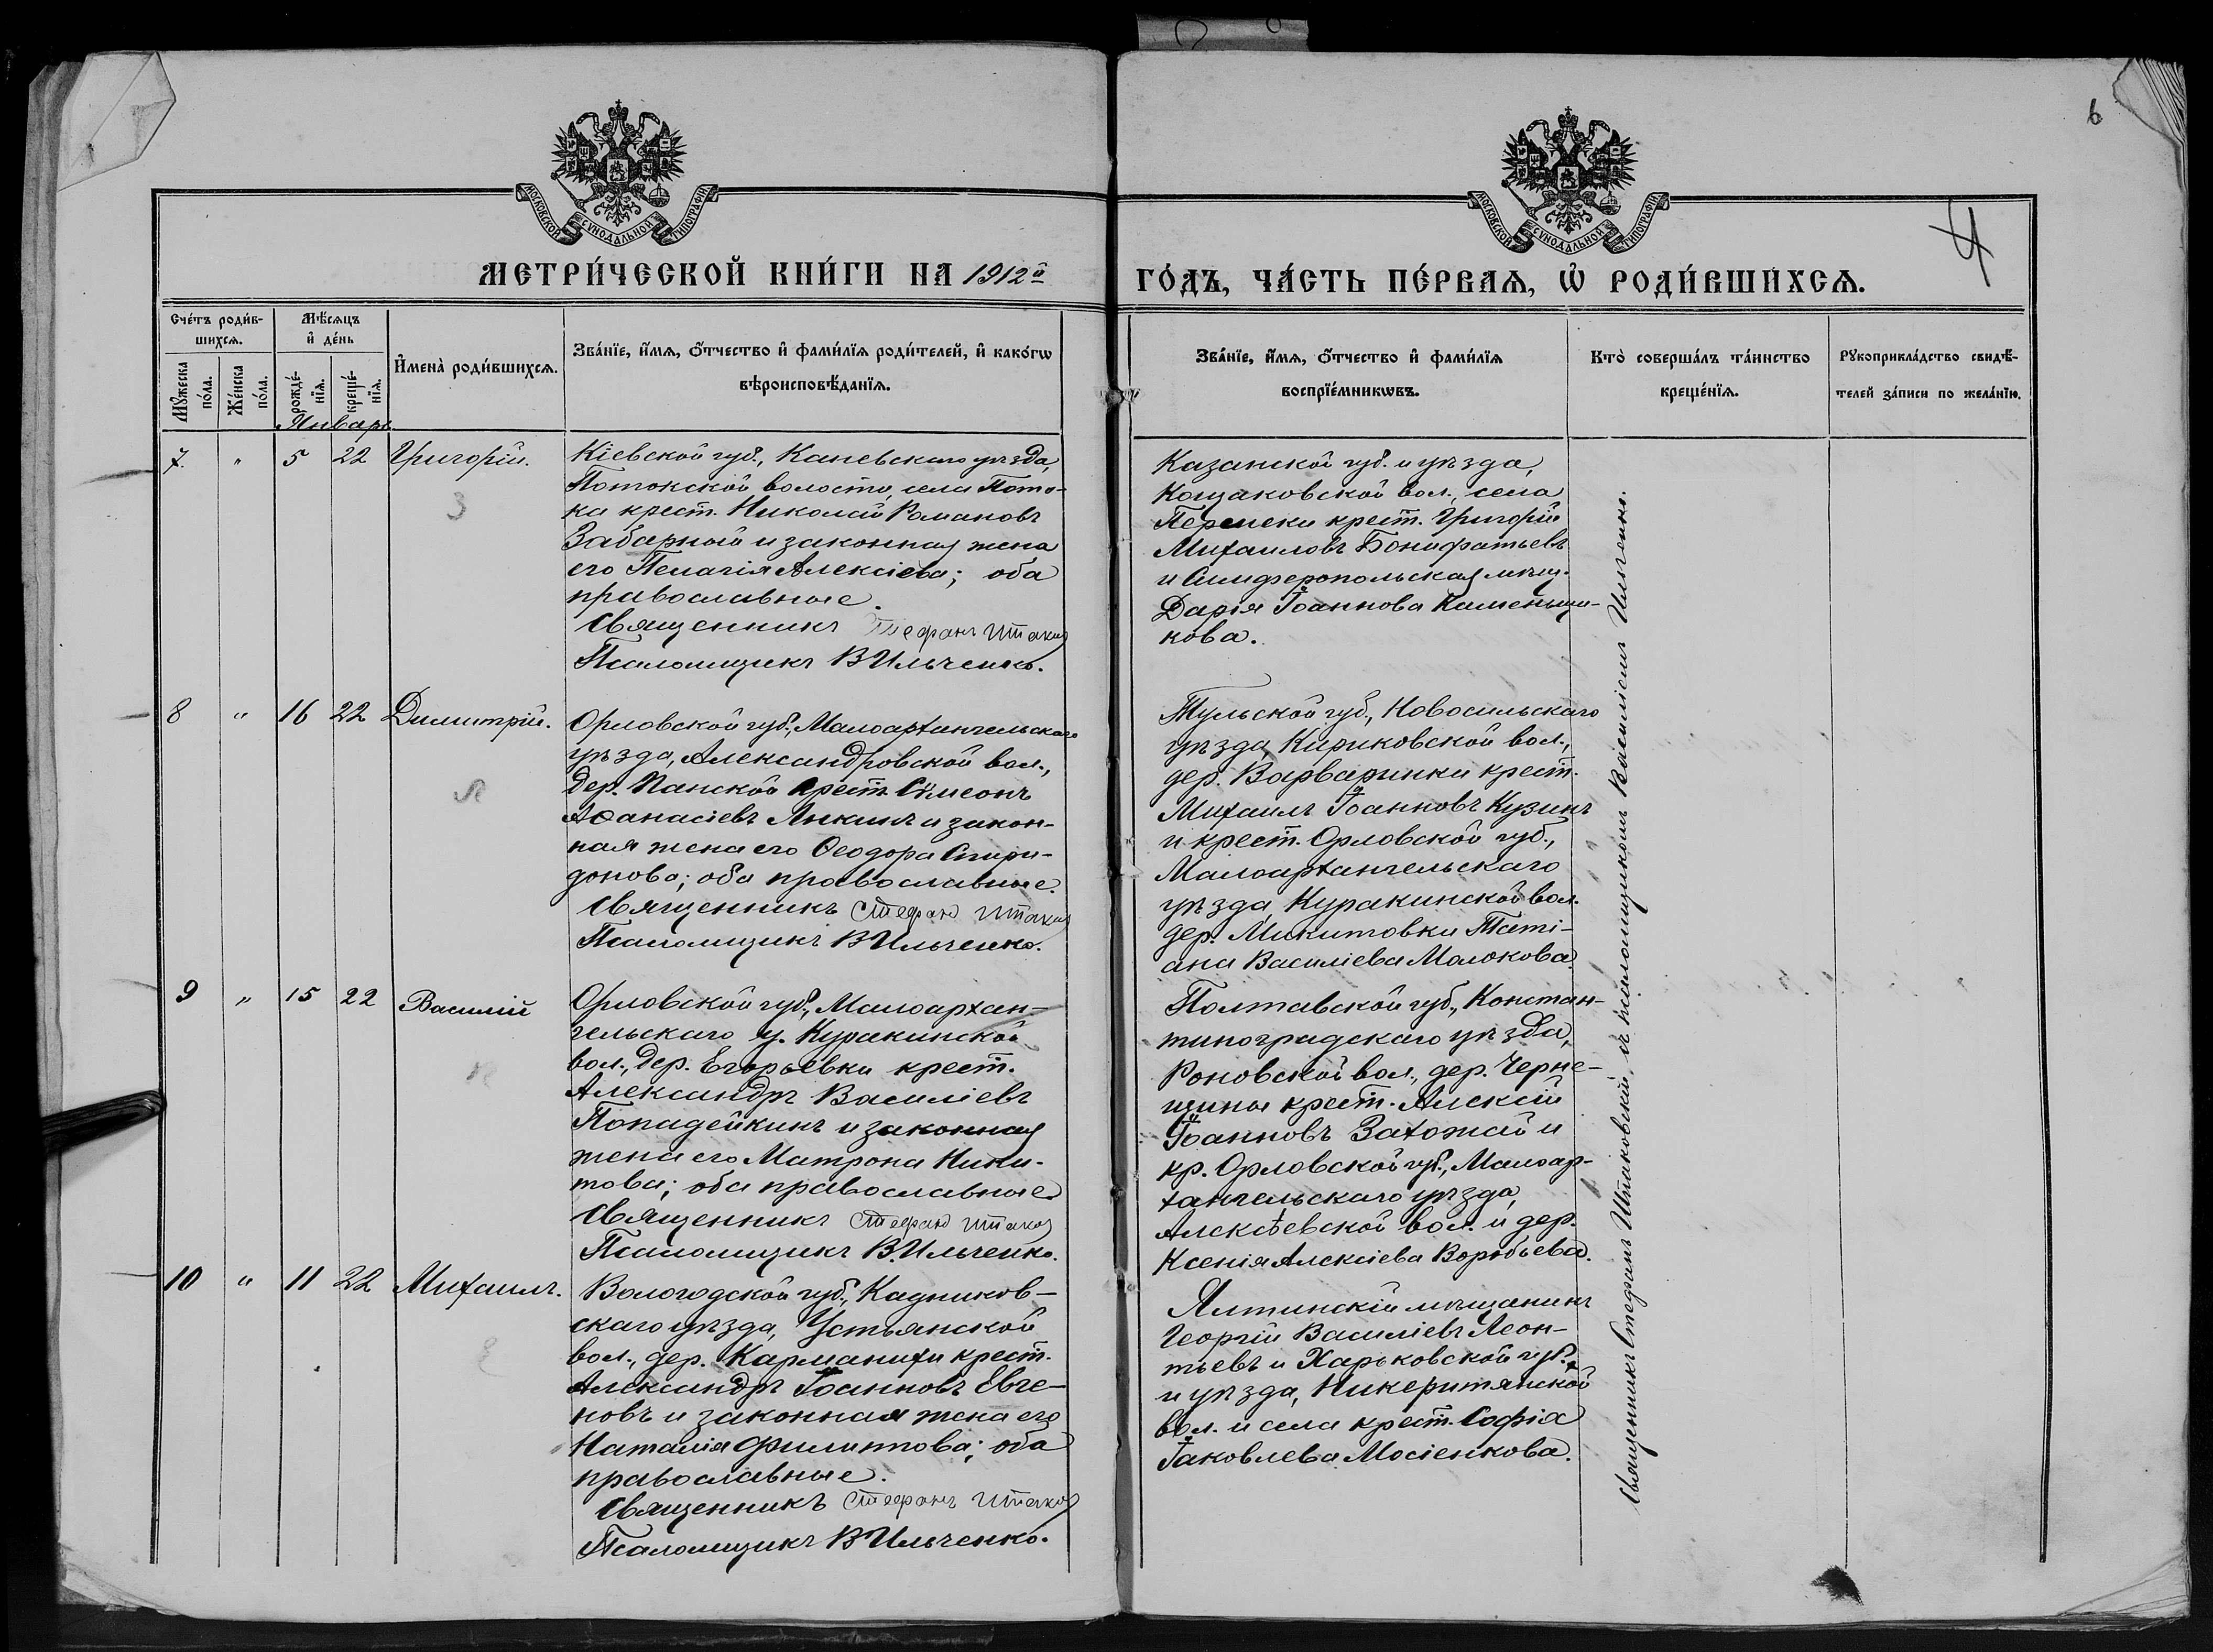 6
4
МОСКОВСКОЙ СѴНОДАЛЬНОЙ ТИПОГРАФІИ
МОСКОВСКОЙ СѴНОДАЛЬНОЙ ТИПОГРАФІИ
МЕТРИ́ЧЕСКОЙ КНИ́ГИ НА 1912й
ГО́ДЪ, ЧА́СТЬ ПЕ́РВАѦ, Ѡ҆ РОДИ́ВШИХСѦ.
Сче́тъ роди́в-
шихсѧ.
Мꙋ́жеска
по́ла.
Же́нска
по́ла.
Мѣ́сѧцъ
и҆ де́нь
рожде́-
нїѧ.
креще́-
нїѧ.
И҆мена̀ роди́вшихсѧ.
Зва́нїе, и҆́мѧ, ѻ҆́тчество и҆ фами́лїѧ роди́телей, и҆ како́гѡ
вѣроисповѣ́данїѧ.
Зва́нїе, и҆́мѧ, ѻ҆́тчество и҆ фами́лїѧ
воспрїе́мникѡвъ.
Кто̀ соверша́лъ та́инство
креще́нїѧ.
Рꙋкоприкла́дство свидѣ́-
телей за́писи по жела́нїю.
Январь
7. " 5 22 Григорій.
Кіевской губ., Каневскаго уѣзда,
Потокской волости, села Пото-
ка крест. Николай Романовъ
Забарный и законная жена
его Пелагія Алексіева; оба
православные.
Священникъ Стефанъ
Псаломщикъ В Ильченко.
Казанской губ. и уѣзда,
Кощаковской вол., села
крест. Григорій
Михаиловъ Бонифатьевъ
и Симферопольская мѣщ.
Дарія Іоаннова Каменьщи-
кова.
8 " 16 22 Димитрій.
Орловской губ., Малоархангельскаго
уѣзда, Александровской вол.,
дер. Панской крест. Симеонъ
Аѳанасіевъ и закон-
ная жена его Ѳеодора Спири-
донова; оба православные.
Священникъ Стефанъ
Псаломщикъ В Ильченко.
Тульской губ., Новосильскаго
уѣзда, Кириковской вол.,
дер. Варваринки крест.
Михаилъ Іоанновъ Кузинъ
и крест. Орловской губ.,
Малоархангельскаго
уѣзда, Куракинской вол.
дер. Микитовки Таті-
ана Василіева Молокова.
9 " 15 22 Василій
Орловской губ., Малоархан-
гельскаго у. Куракинской
вол., дер. Егорьевки крест.
Александръ Василіевъ
Попадейкинъ и законная
жена его Матрона Ники-
това; оба православные
Священникъ Стефанъ
Псаломщикъ В. Ильченко.
Полтавской губ., Констан-
тиноградскаго уѣзда,
Роновской вол., дер. Черне-
щины крест. Алексій
Іоанновъ Захожай и
кр. Орловской губ., Малоар-
хангельскаго уѣзда,
Алексѣевской вол. и дер.
Ксенія Алексіева Воробьева.
10 " 11 22 Михаилъ.
Вологодской губ., Кадников-
скаго уѣзда, Устьянской
вол., дер. Карманихи крест.
Александръ Іоанновъ Евге-
новъ и законная жена его
Наталія Филиппова; оба
православные.
Священникъ Стефанъ
Псаломщикъ В Ильченко.
Ялтинскій мѣщанинъ
Георгій Василіевъ Леон-
тьевъ и Харьковской губ.
и уѣзда,
вол. и села крест. Софія
Іаковлева Мосіенкова.
Священникъ Стефанъ Итаковскій, съ псаломщикомъ Василіемъ Ильченко.